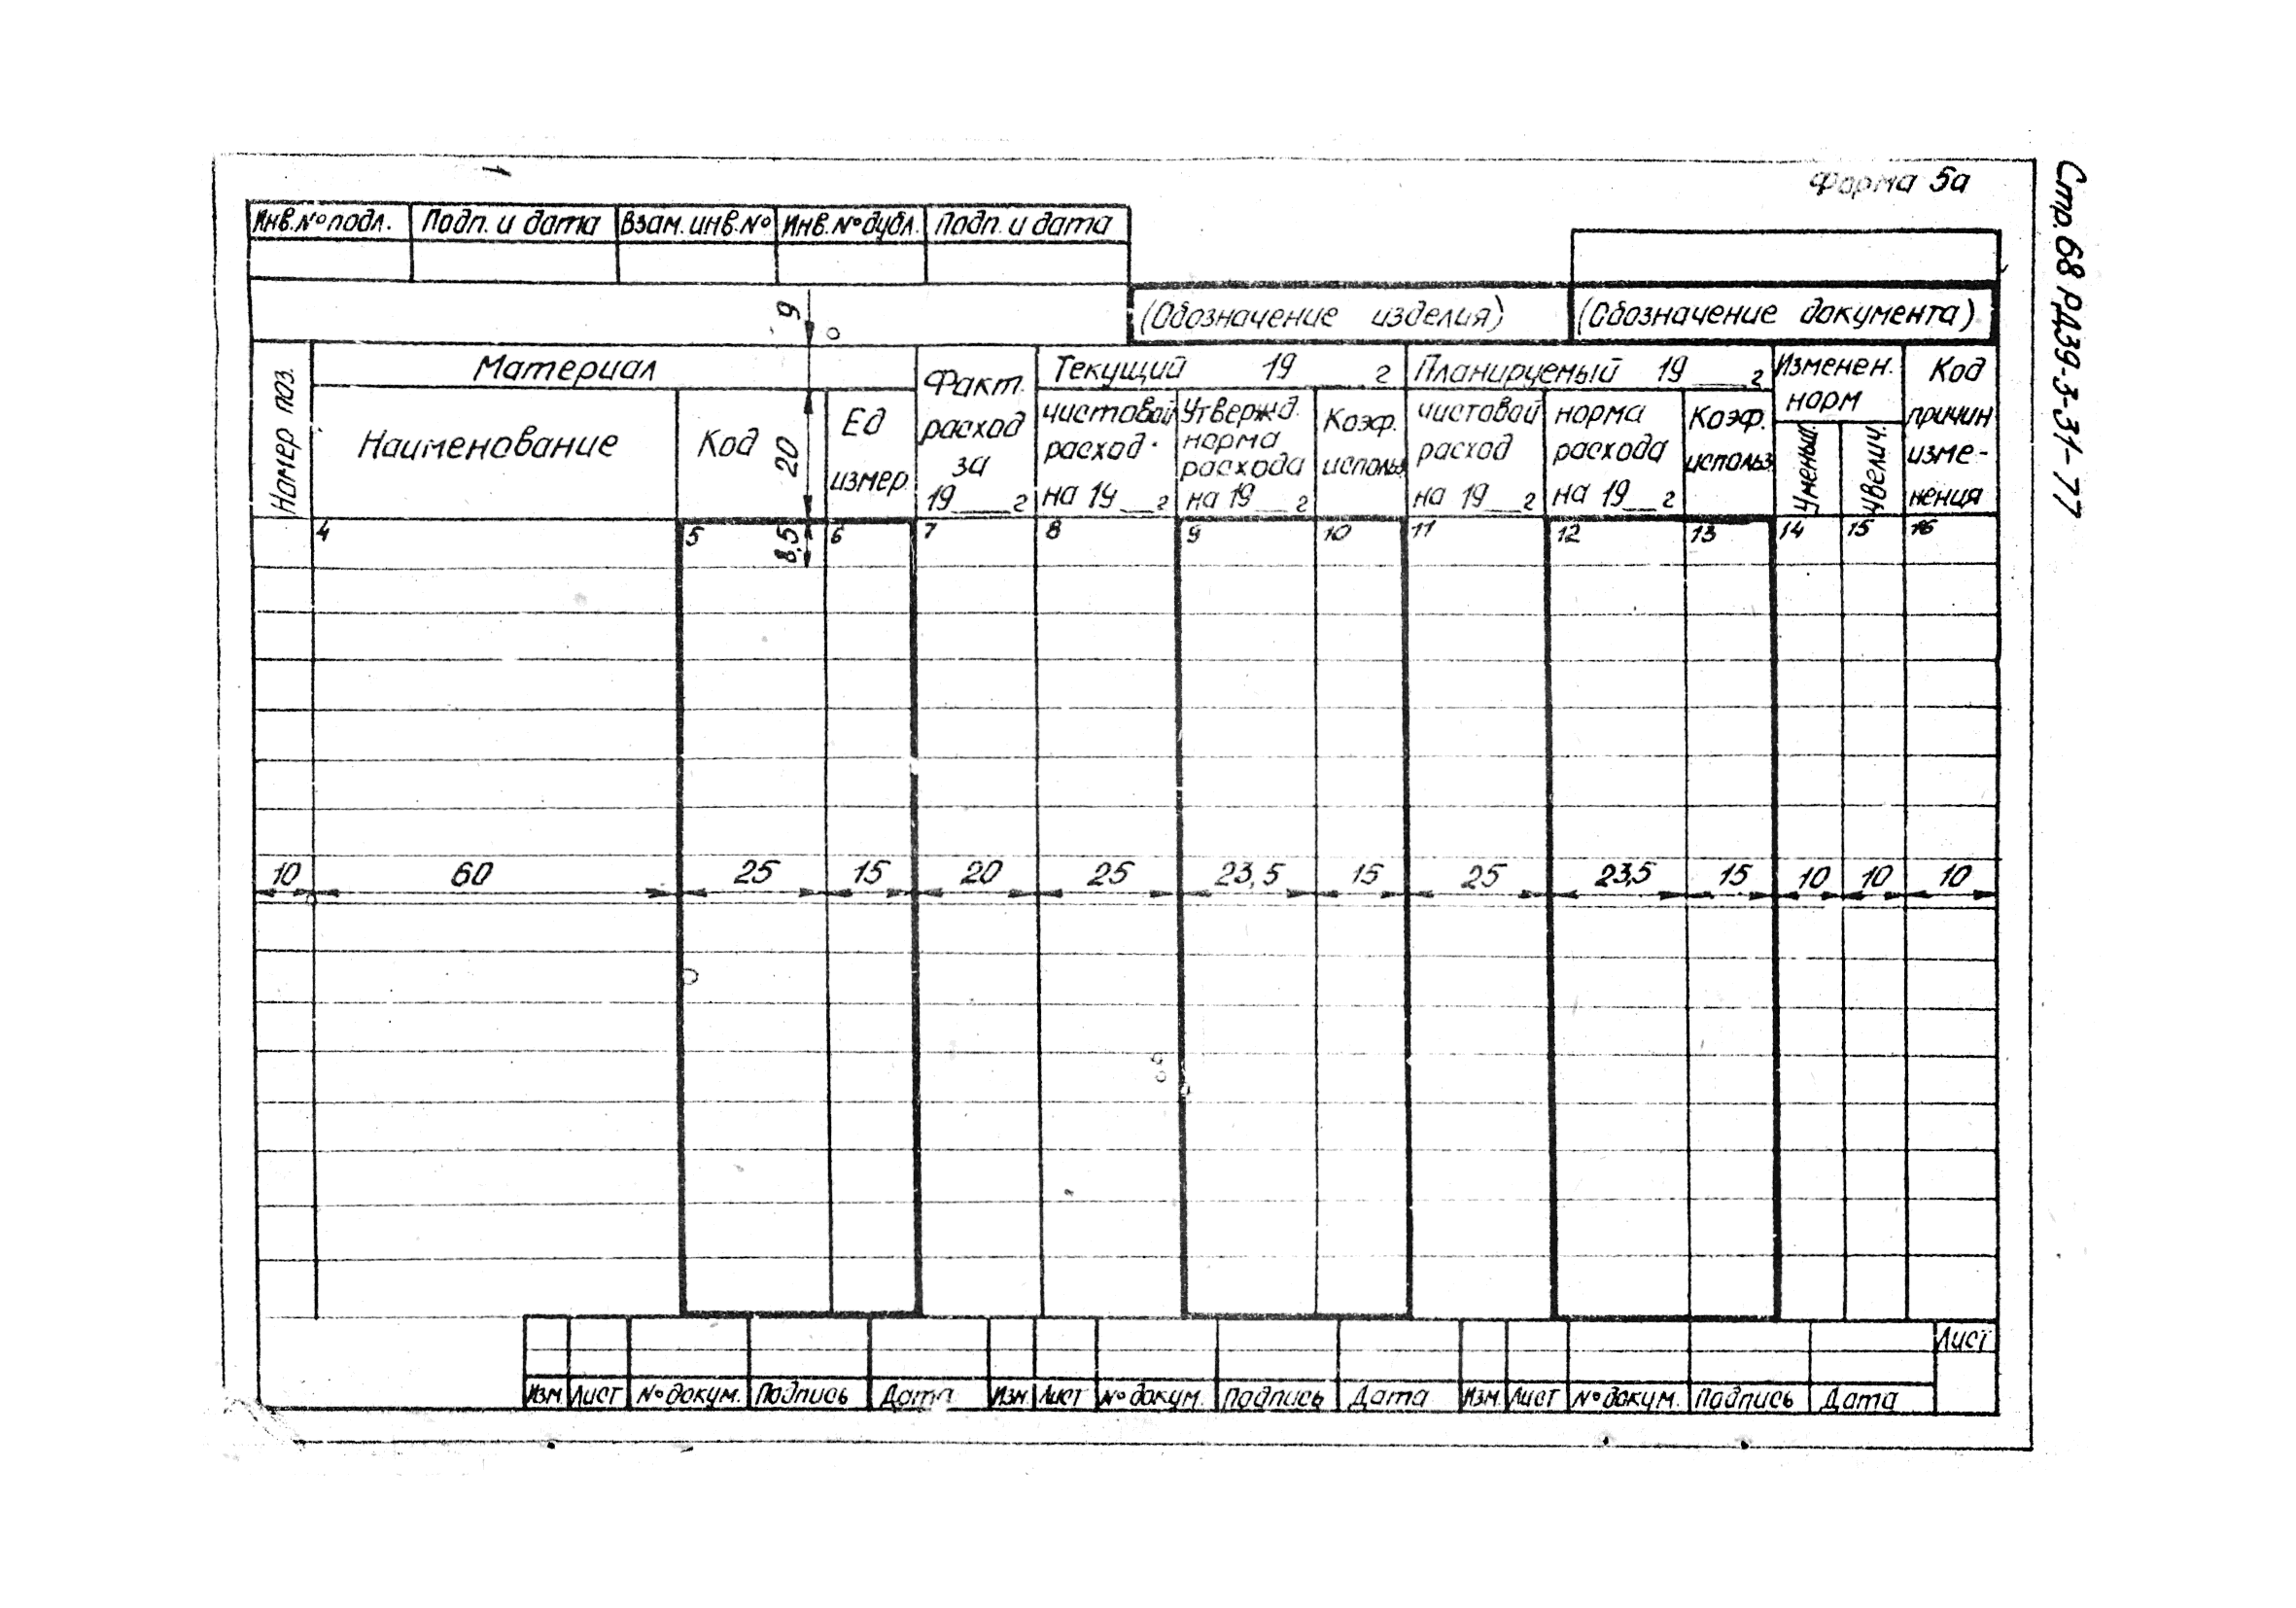 Форма 5а
Стр. 68 РД39-3-31-77
Инв.№ подл. Подп. и дата Взам.инв.№ Инв.№дубл. Подп. и дата
9
(Обозначение изделия) (Обозначение документа)
Номер поз.
Материал
Наименование
Код
20
Ед
измер.
Факт.
расход
за
19___г
Текущий 19 ___ г
чистовой
расход
на 19__г
Утвержд.
норма
расхода
на 19__г
Коэф.
использ
Планируемый 19___г
чистовой
расход
на 19__г
норма
расхода
на 19__г
Коэф.
использ
Изменен.
норм
Уменьш.
Увелич.
Код
причин
изме-
нения
4 5 8,5 6 7 8 9 10 11 12 13 14 15 16
10 60 25 15 20 25 23,5 15 25 23,5 15 10 10 10
Лист
Изм Лист №докум. Подпись Дата Изм. Лист №докум. Подпись Дата Изм. Лист №докум. Подпись Дата